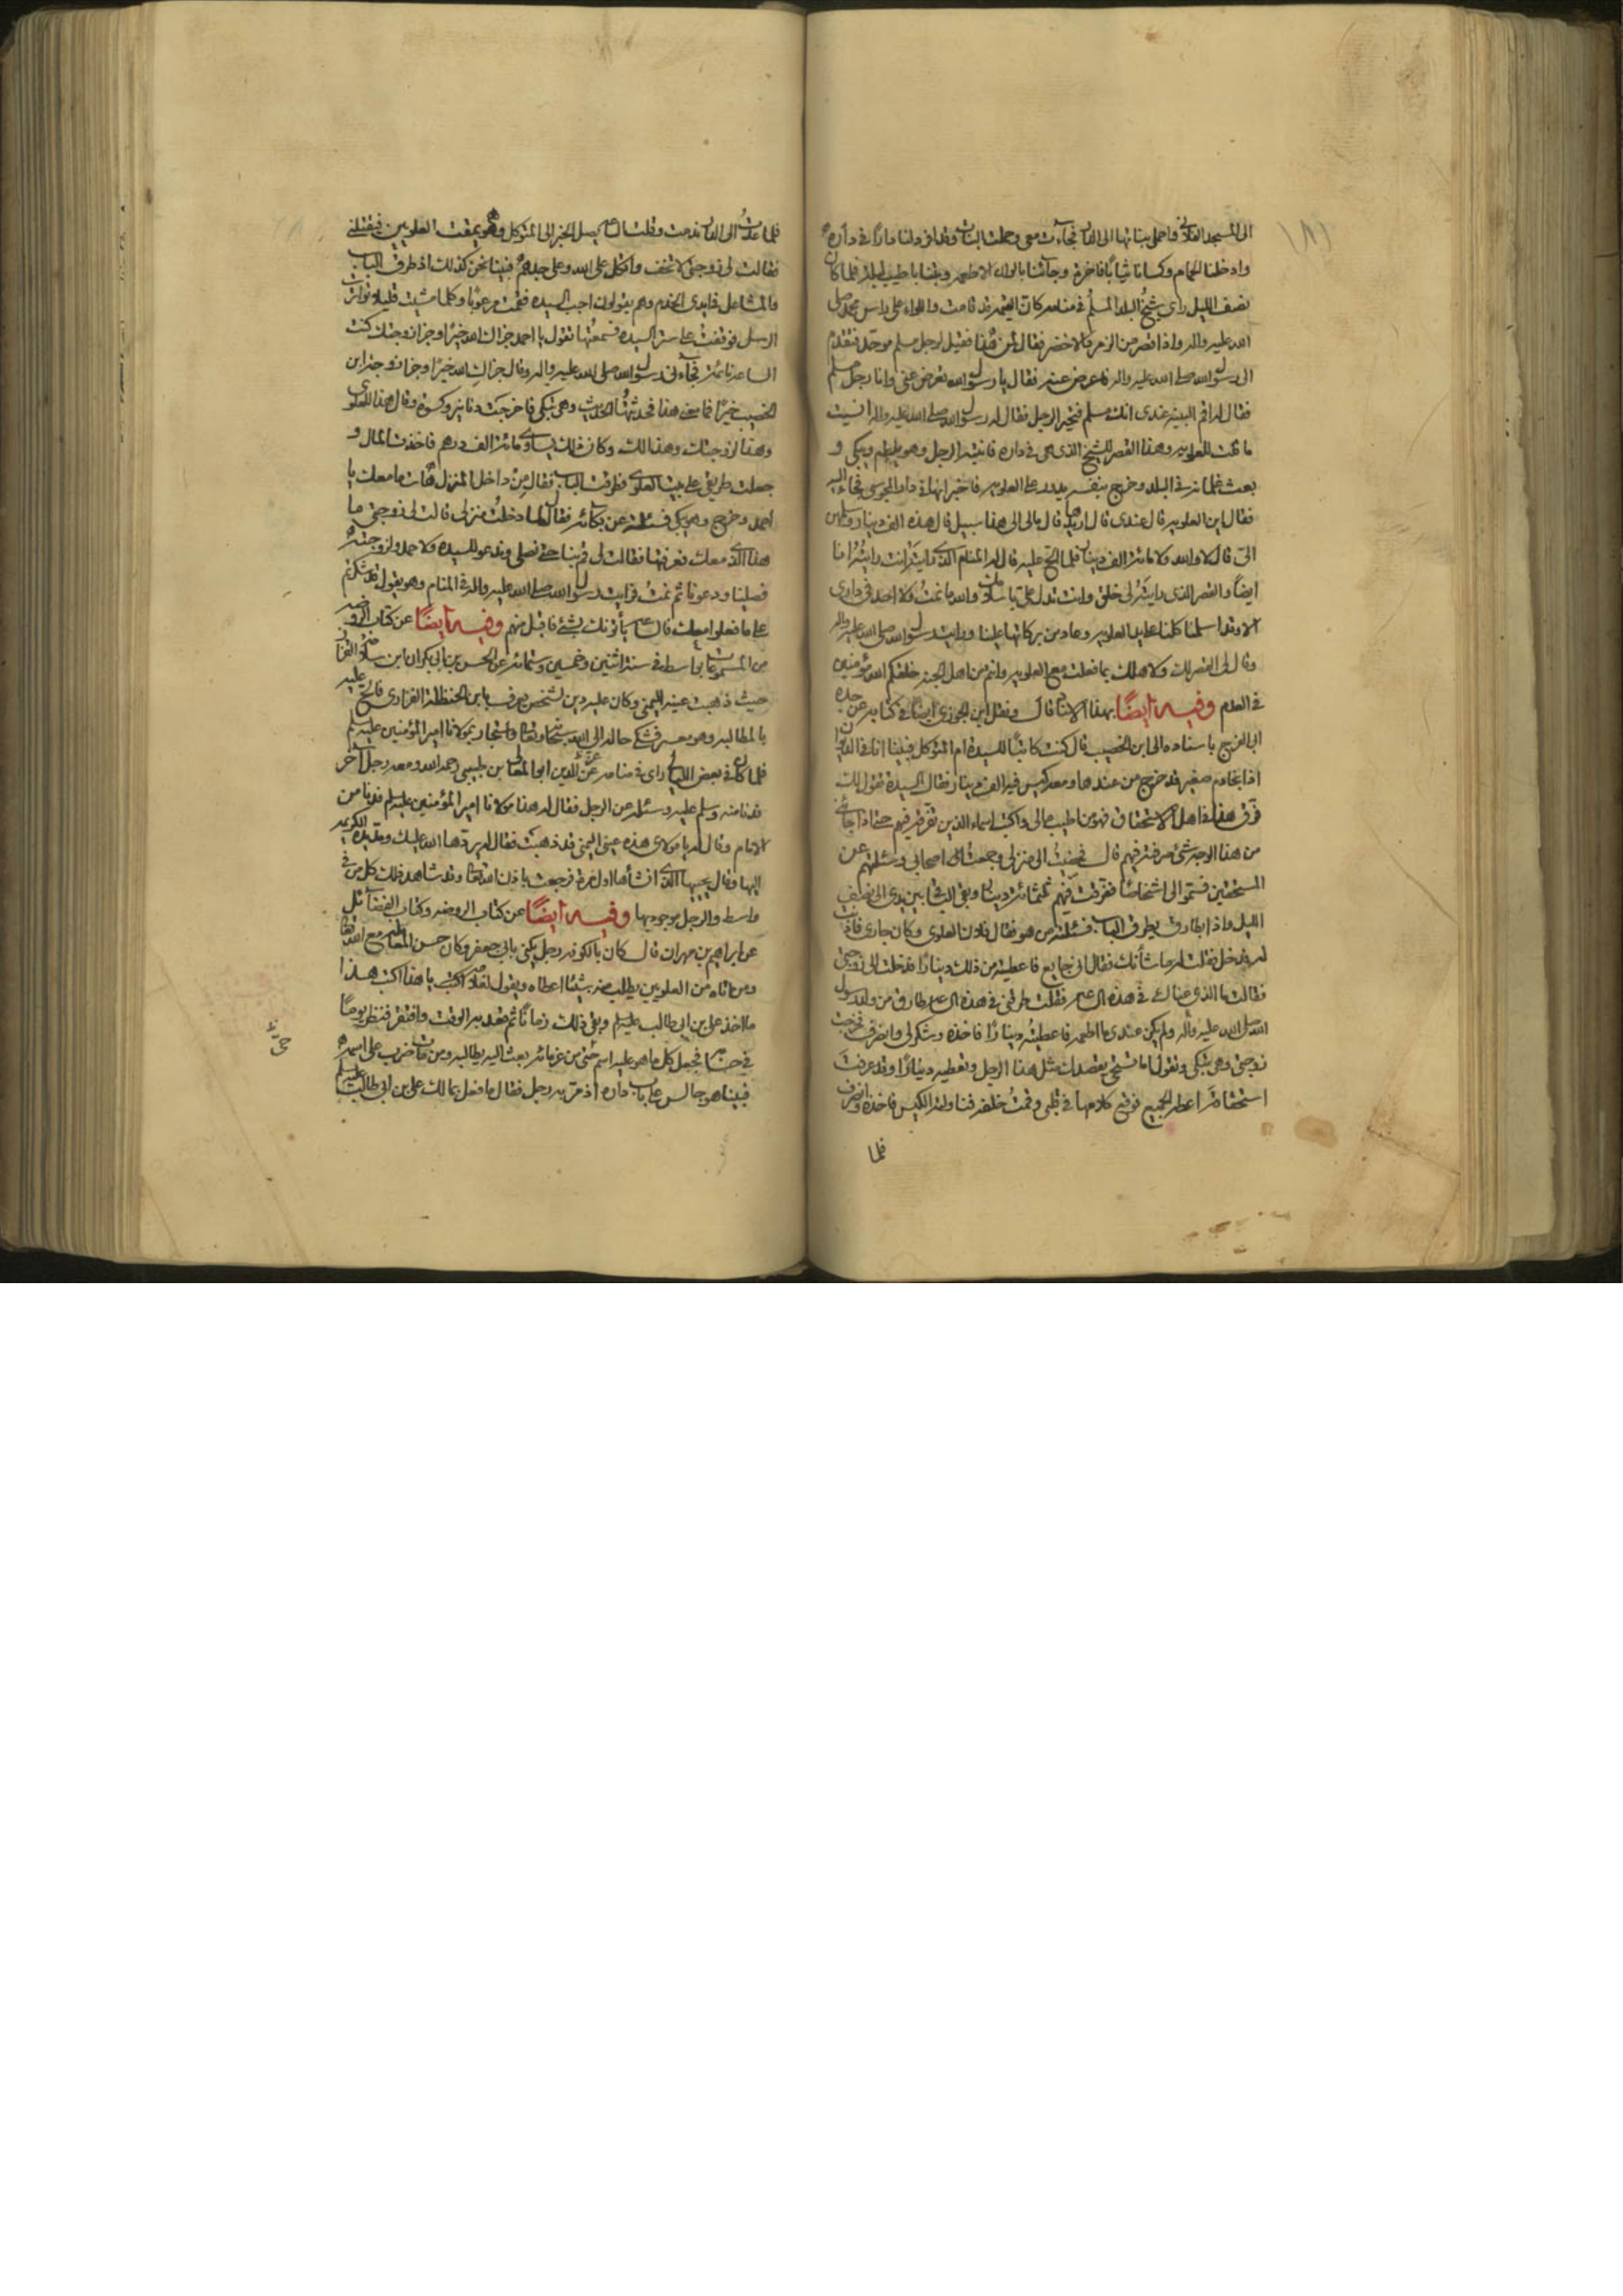 الى المسجد الفلانى واحملى بناتها الى الدار فجآءت معى وحملت البنات وقد افرد لنا دارًا فى داره
وادخلنا الحمام وكسانا ثيابًا فاخرة وجآئنا بالوان الاطعمه وبتنا باطيب ليلة فلما كان
نصف الليل راى شيخ البلد المسلم فى منامه كان القيمه قد قامت واللواء على راس محمد صلى
الله عليه واله واذا قصر من الزمرد الاخضر فقال لمن هذا فقيل لرجل مسلم موحّد فتقدم
الى رسول الله صلى الله عليه واله فاعرض عنه فقال يا رسول الله تعرض عنى وانا رجل مسلم
فقال له اقم البينه عندى انك مسلم فتحير الرجل فقال له رسول الله صلى الله عليه واله انسيت
ما قلت للعلويه وهذا القصر للشيخ الذى هى فى داره فانتبه الرجل وهو يلطم ويبكى و
بعث غلمانه فى البلد وخرج بنفسه يدور على العلويه فاخبر انها فى دار المجوسى فجاء اليه
فقال اين العلويه قال عندى قال اريدها قال مالى الى هذا سبيل قال هذه الف دينار وسلمهن
الىّ قال لا والله ولا مائة الف دينار فلما الحّ عليه قال له المنام الذى رايته انت رايته انا
ايضًا والقصر الذى رايته لى خلق وانت تدل علىّ باسلامك والله ما نمت ولا احد فى دارى
الا وقد اسلمنا كلنا على يد العلويه وعاد من بركاتها علينا ورايت رسول الله صلى الله عليه واله
وقال لى القصر لك ولاهلك بما فعلت مع العلويه وانتم من اهل الجنة خلقكم الله مؤمنين
فى القدم وفيه ايضًا بهذا الاسناد قال ونقل ابن الجوزى ايضًا فى كتابه عن جده
ابى الفرج باسناده الى ابن الخصيب قال كنت كاتبًا للسيدة ام المتوكل فبينا انا فى الديوان
اذا بخادم صغير قد خرج من عندها ومعه كيس فيه الف دينار فقال السيدة تقول لك
فرّق هذا فى اهل الاستحقاق فهو من اطيب مالى واكتب اسماء الذين تفرقه فيهم حتى اذا جائنى
من هذا الوجه شئ صرفته فيهم قال فمضيت الى منزلى وجمعت اصحابى وسئلتهم عن
المستحقين فسمّوا الى اشخاصًا ففرقت فيهم ثلثمائة دينار وبقى الباقى بين يدى الى نصف
الليل واذا بطارق يطرق الباب فسئلته من هو فقال فلان العلوى وكان جارى فاذنت
له فدخل فقلت له ما شأنك فقال انى جايع فاعطيته من ذلك دينارًا فدخلت الى زوجتى
فقالت ما الذى عناك فى هذه الساعة فقلت طرقنى فى هذه الساعة طارق من ولد رسول
الله صلى الله عليه واله ولم يكن عندى ما اطعمه فاعطيته دينارًا فاخذه وشكر لى وانصرف فخرجت
زوجتى وهى تبكى وتقول اما تستحى يقصدك مثل هذا الرجل وتعطيه دينارًا وقد عرفت
استحقاقه اعطه الجميع فوقع كلامها فى قلبى وقمت خلفه فناولته الكيس فاخذه وانصرف
فلما
فلما عدت الى الدار ندمت وقلت الساعة يصل الخبر الى المتوكل وهو يمقت العلويين فيقتلنى
فقالت لى زوجتى لا تخف واتكل على الله وعلى جدهم فبينا نحن كذلك اذ طرق الباب
والمشاعل بايدى الخدم وهم يقولون اجب السيده فقمت مرعوبًا وكلما مشيت قليلا تواترت
الرسل فوقفت على ستر السيده فسمعتها تقول يا احمد جزاك الله خيرًا وجزا زوجتك كنت
الساعة نائمة فجآءنى رسول الله صلى الله عليه واله وقال جزاك الله خيرًا وجزا زوجة ابن
الخصيب خيرًا فما معنى هذا فحدثتها الحديث وهى تبكى فاخرجت دنانير وكسوة وقال هذا للعلوى
وهذا لزوجتك وهذا لك وكان ذلك يساوى مائة الف درهم فاخذت المال و
جعلت طريقى على بيت العلوى فطرقت الباب فقال من داخل المنزل هات ما معك يا
احمد وخرج وهو يبكى فسئلته عن بكائه فقال لما دخلت منزلى قالت لى زوجتى ما
هذا الذى معك فعرفتها فقالت لى قم بنا حتى نصلى وندعو للسيده ولاحمد ولزوجته
فصلينا ودعونا ثم نمت فرايت رسول الله صلى الله عليه واله فى المنام وهو يقول قد شكرتم
على ما فعلوا معك فالساعة يأتونك بشئ فاقبل منهم وفيه ايضًا عن كتاب الروضه
من المسموعات بواسط فى سنة اثنتين وخمسين وستمائة عن الحسن بن ابى بكر ان ابن سلامه القزاز
حيث ذهبت عينه اليمنى وكان عليه دين لشخص يعرف بابن الحنظلة الفزارى فالحّ عليه
بالمطالبه وهو معسر فشكى حاله الى الله سبحانه وتعالى واستجار بمولانا امير المؤمنين عليه السلم
فلما كان فى بعض الليالى راى فى منامه عزّ الدين ابو المعالى بن طبيبى رحمه الله ومعه رجل آخر
فدنا منه وسلم عليه وسئله عن الرجل فقال له هذا مولانا امير المؤمنين عليه السلم فدنا من
الامام وقال له يا مولاى هذه عينى اليمنى قد ذهبت فقال له يردّها الله عليك ومدّ يده الكريمه
اليها وقال يحييها الذى انشأها اول مرة فرجعت باذن الله تعالى وقد شاهد ذلك كل من فى
واسط والرجل موجود بها وفيه ايضًا عن كتاب الروضه وكتاب الفضآئل
عن ابراهيم بن مهران قال كان بالكوفه رجل يكنى بابى جعفر وكان حسن المعامله مع الله تعالى
ومن اتاه من العلويين يطلب منه شيئًا اعطاه ويقول لغلامه اكتب يا هذا اكتب هذا
ما اخذ على بن ابى طالب عليه السلم وبقى ذلك زمانًا ثم قعد به الوقت وافتقر فنظر يومًا
فى حسابه فجعل كل ما هو عليه اسم حىّ من غرمائه بعث اليه يطالبه ومن مات ضرب على اسمه
فبينا هو جالس على باب داره اذ مرّ به رجل فقال ما فعل بمالك على بن ابى طالب عليه السلم